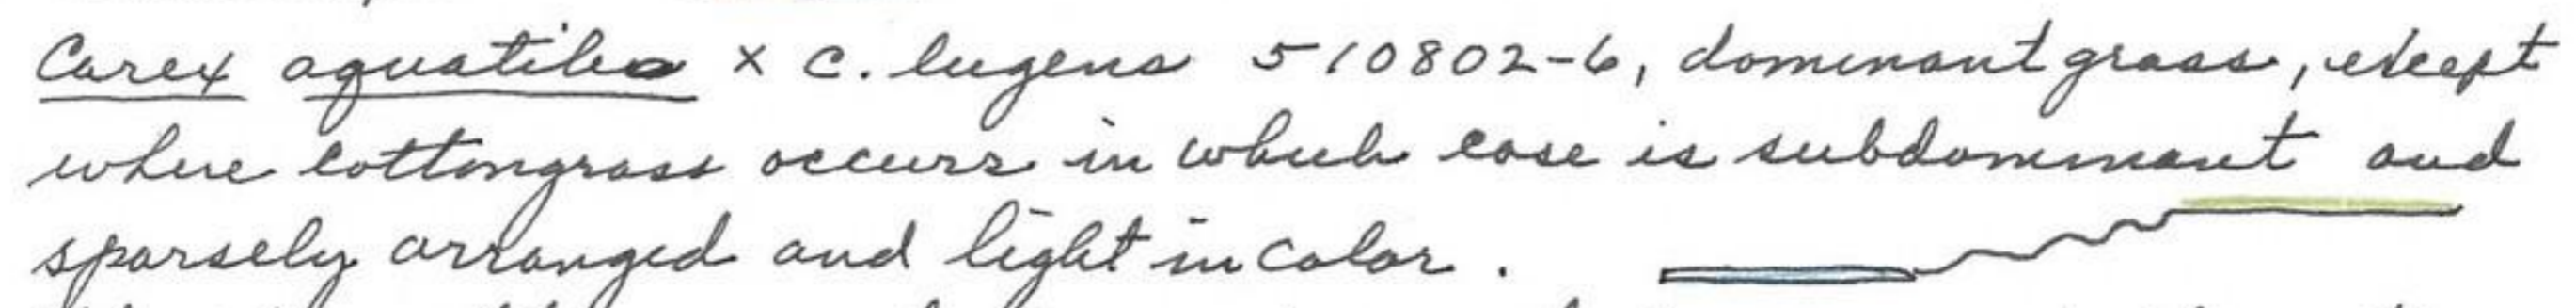 Carex aquatilis x C. lugens 510802-6, dominant grass, except
where cottongrass occurs in which case is subdominant and
sparsely arranged and light in color.